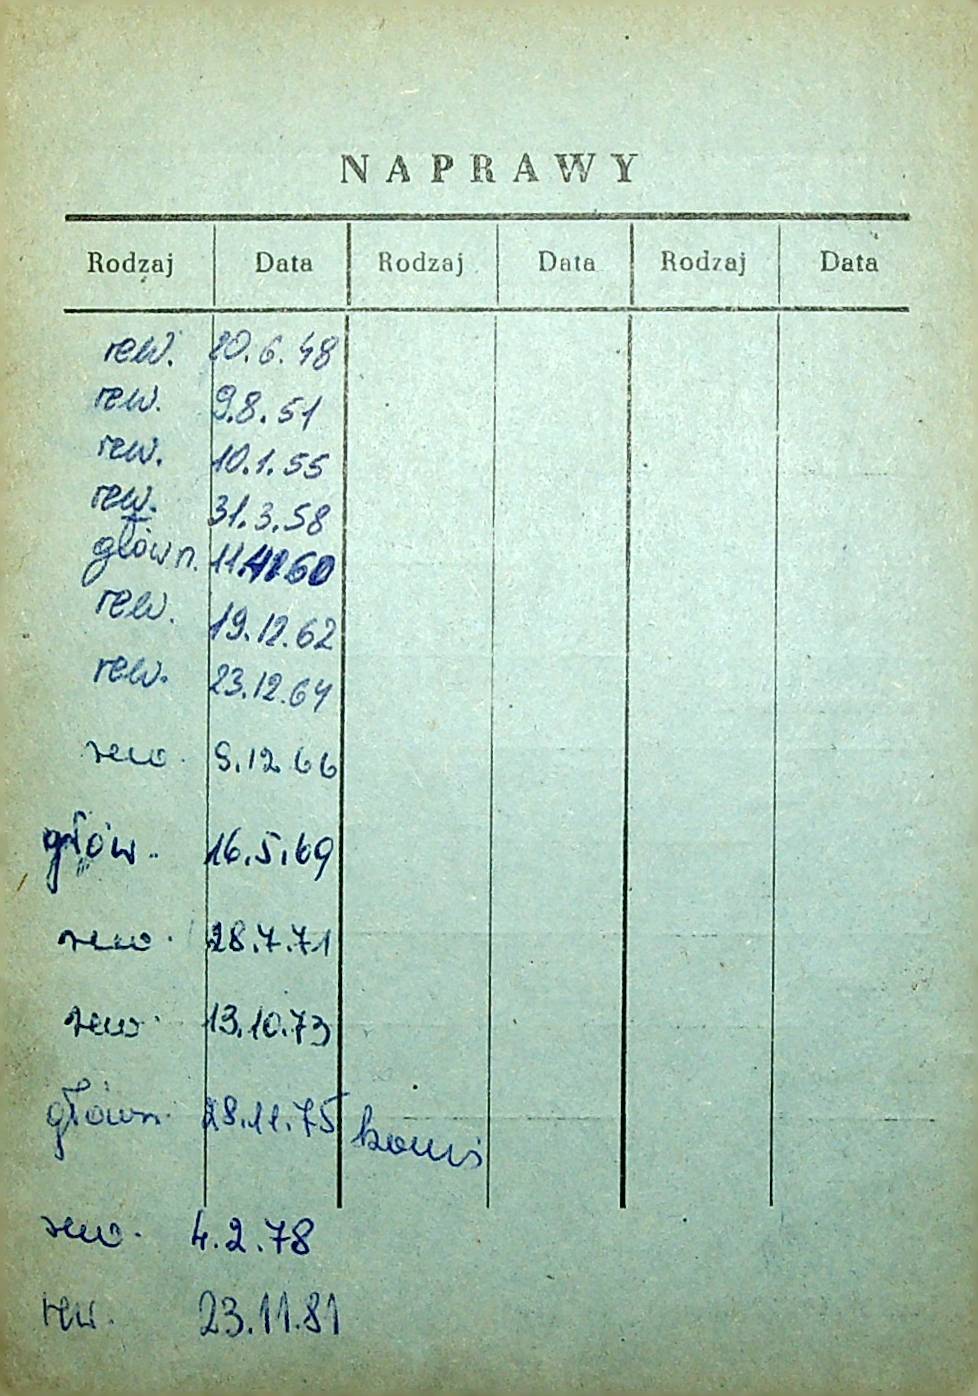 NAPRAWY
Rodzaj Data Rodzaj Data Rodzaj Data
rew. 20.6.48
rew. 9.8.51
rew. 10.1.55
rew. 31.3.58
główn. 11.
rew. 19.12.62
rew. 23.12.64
rew. 9.12.66
głów. 16.5.69
rew. 28.7.71
rew. 13.10.73
główn. 28.11.75
rew. 4.2.78
rew. 23.11.81